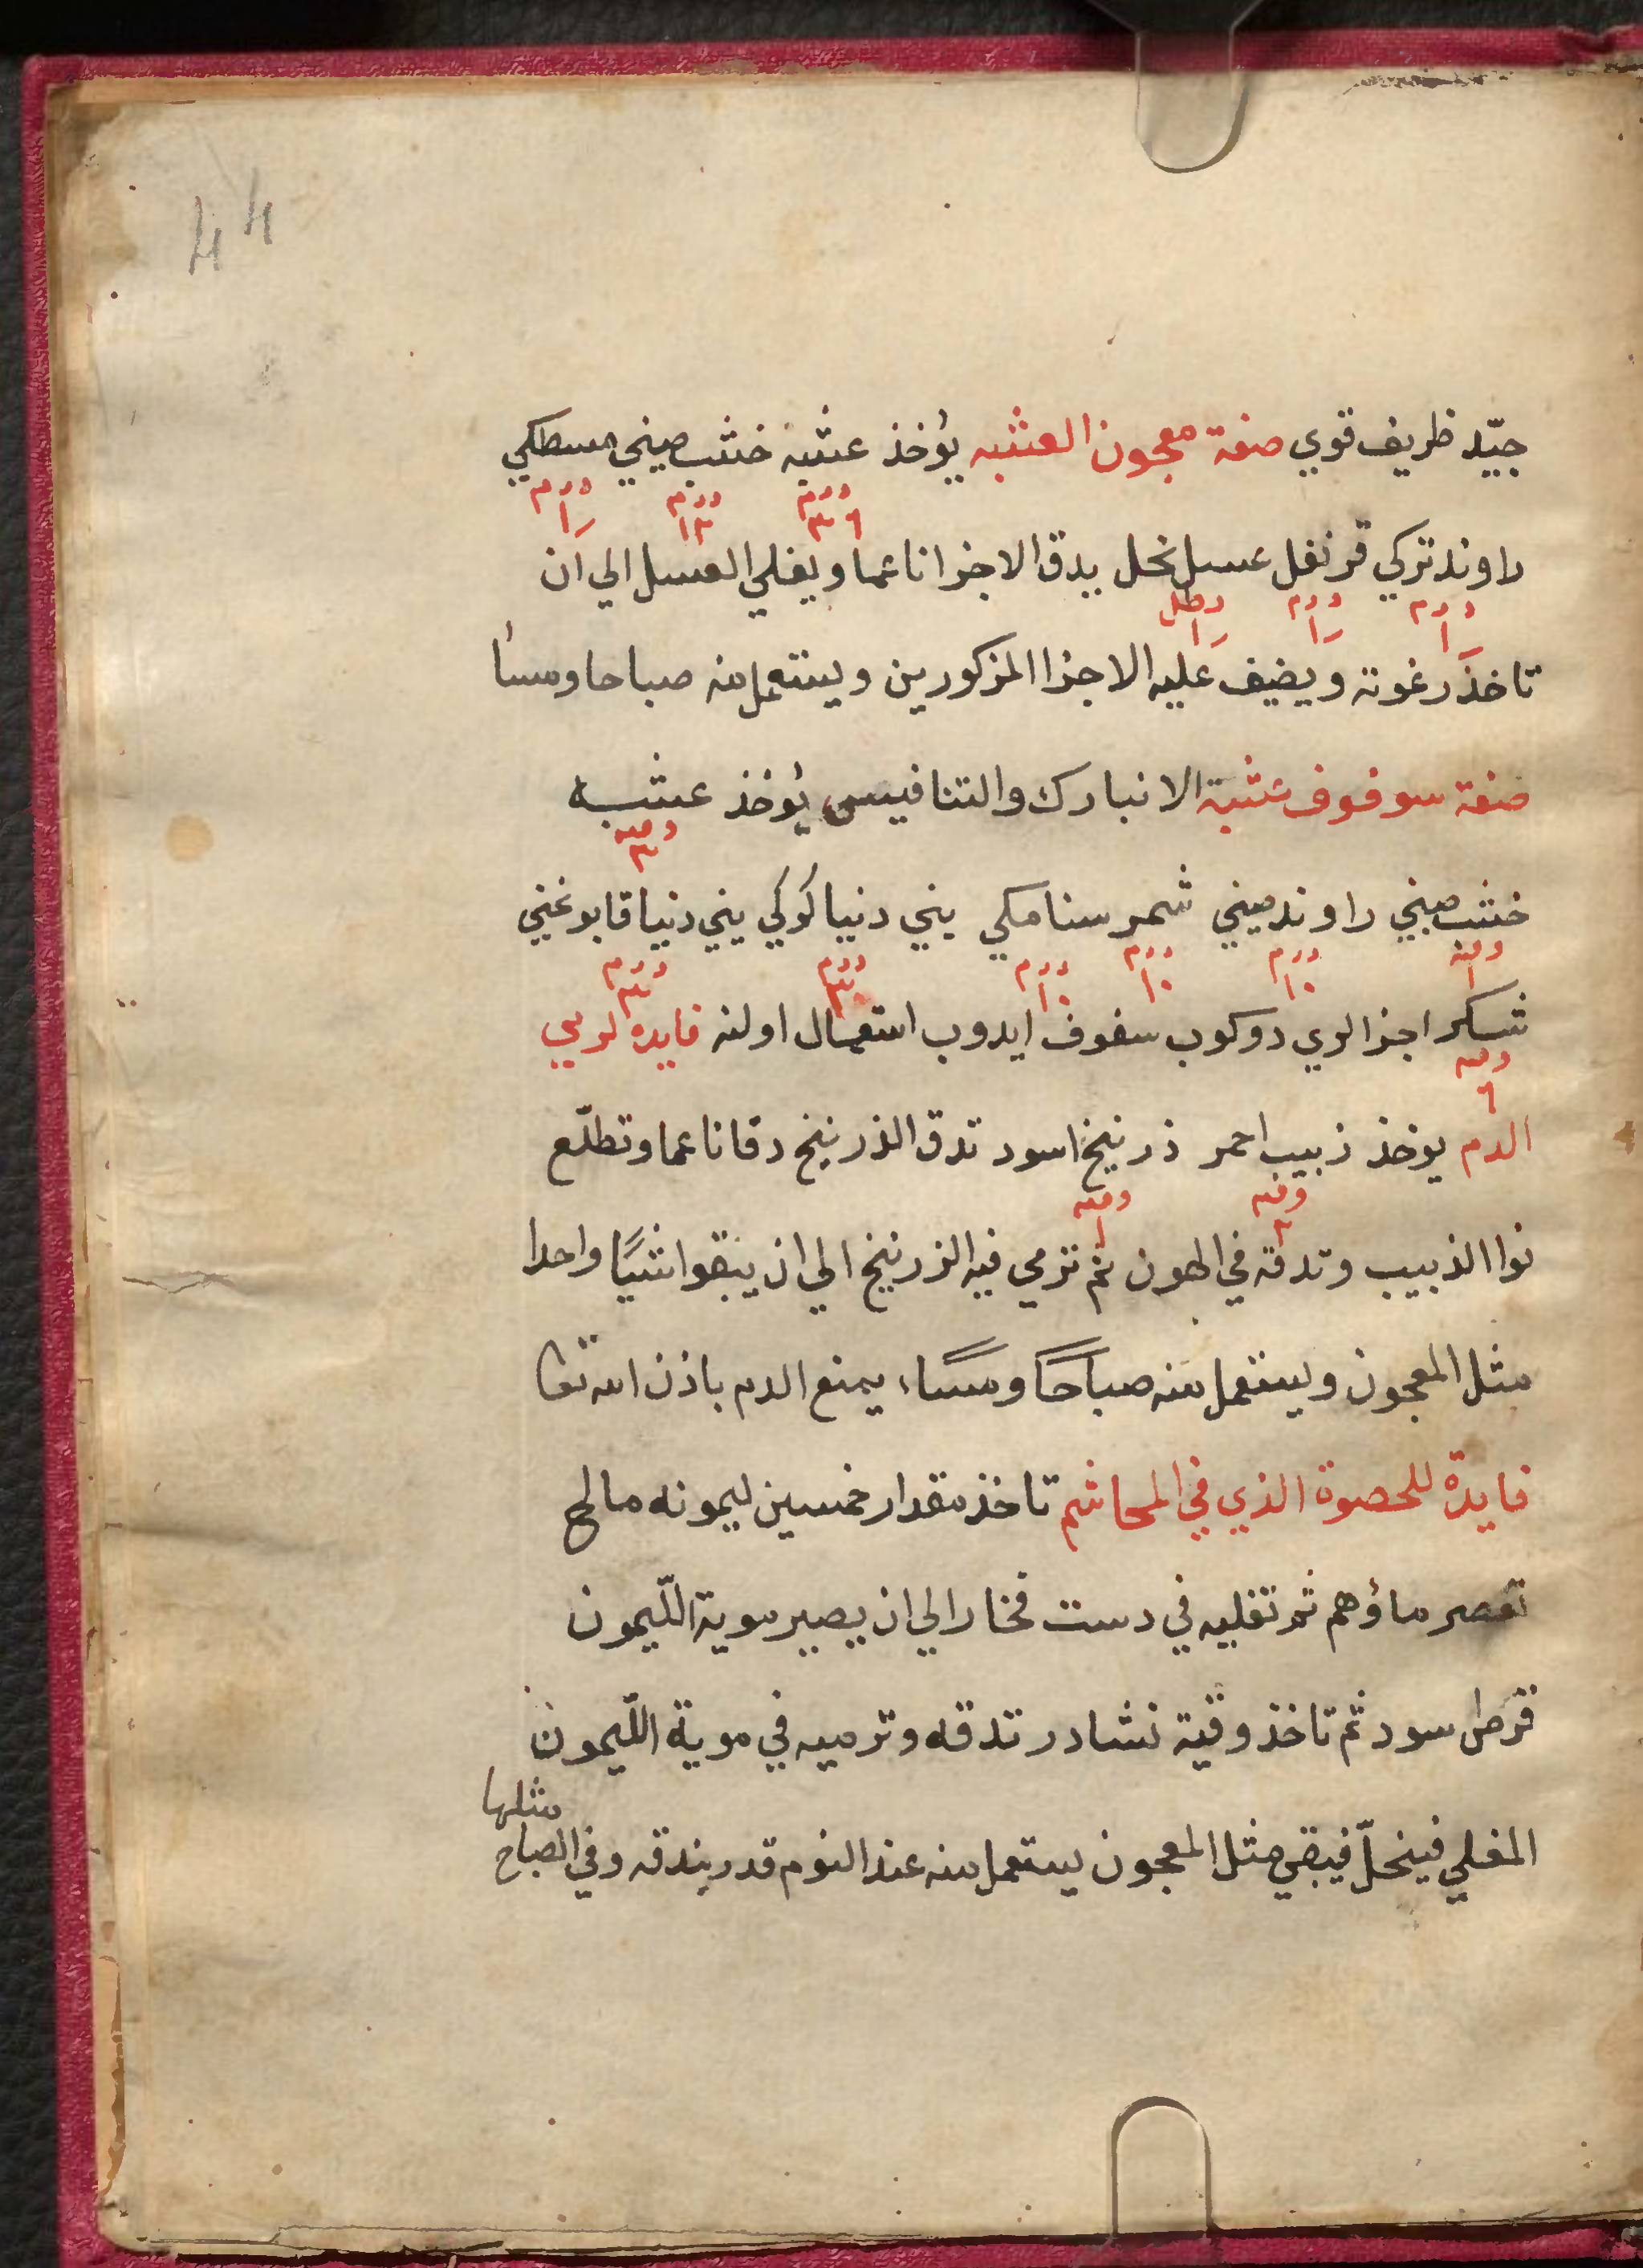 44
جيّد ظريف قوي صفة معجون العشبه يؤخذ عشبه خشب صيني مسطكي
درم ٣٦ درم ١٢ درم ١
راوند تركي قرنفل عسل نحل يدق الاجزا ناعما ويغلي العسل الي ان
درم ١ درم ١ رطل ١
تاخذ رغوته ويضيف عليه الاجزا المزكورين ويستعمل منه صباحا ومسأ
صفة سوفوف عشبة الانبارك والتنافيس يؤخذ عشبه
وقيه ٣
خشب صيني راوند صيني شمر سنامكي يني دنيا كوكي يني دنيا قابوغني
وقيه ١ درم ١٠ درم ١٠ درم ١٠ درم ٣٠ درم
شكر اجزالري دوكوب سفوف ايدوب استعمال اولنه فايده لرمي
وقيه ٦
الدم يوخذ زبيب احمر ذرنيخ اسود تدق الذرنيخ دقا ناعما وتطلّع
وقيه ٢ وقيه ١
نوا الذبيب وتدقه في الهون ثم ترمي فيه الزرنيخ الي ان يبقوا شيًا واحدا
مثل المعجون ويستعمل منه صباحاً ومساًء يمنع الدم باذن الله تعا
فايدة للحصوة الذي في المحاشم تاخذ مقدار خمسين ليمونه مالح
تعصر ماؤهم ثم تغليه في دست فخار الي ان يصير موية اللّيمون
قرط اسود ثم تاخذ وقية نشادر تدقه وترميه في موية اللّيمون
المغلي فينحلّ فيبقي مثل المعجون يستعمل منه عند النوم قدر بندقه وفي الصباح
مثلها